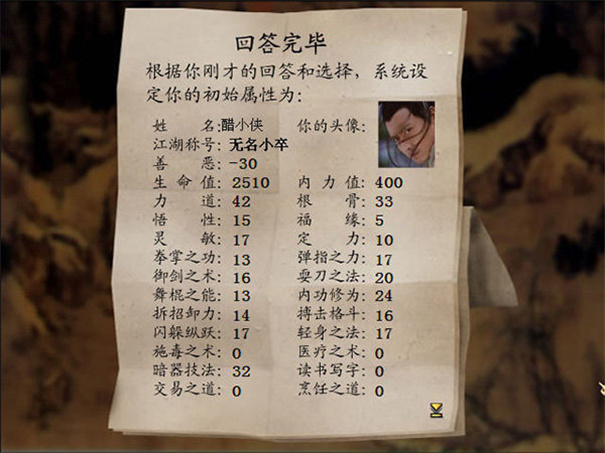 回答完毕
根据你刚才的回答和选择，系统设
定你的初始属性为：
姓 名：醋小侠 你的头像：
江湖称号：无名小卒
善 恶：-30
生 命 值：2510 内 力 值：400
力 道：42 根 骨：33
悟 性：15 福 缘：5
灵 敏：17 定 力：10
拳掌之功：13 弹指之力：17
御剑之术：16 耍刀之法：20
舞棍之能：13 内功修为：24
拆招卸力：14 搏击格斗：16
闪躲纵跃：17 轻身之法：17
施毒之术：0 医疗之术：0
暗器技法：32 读书写字：0
交易之道：0 烹饪之道：0